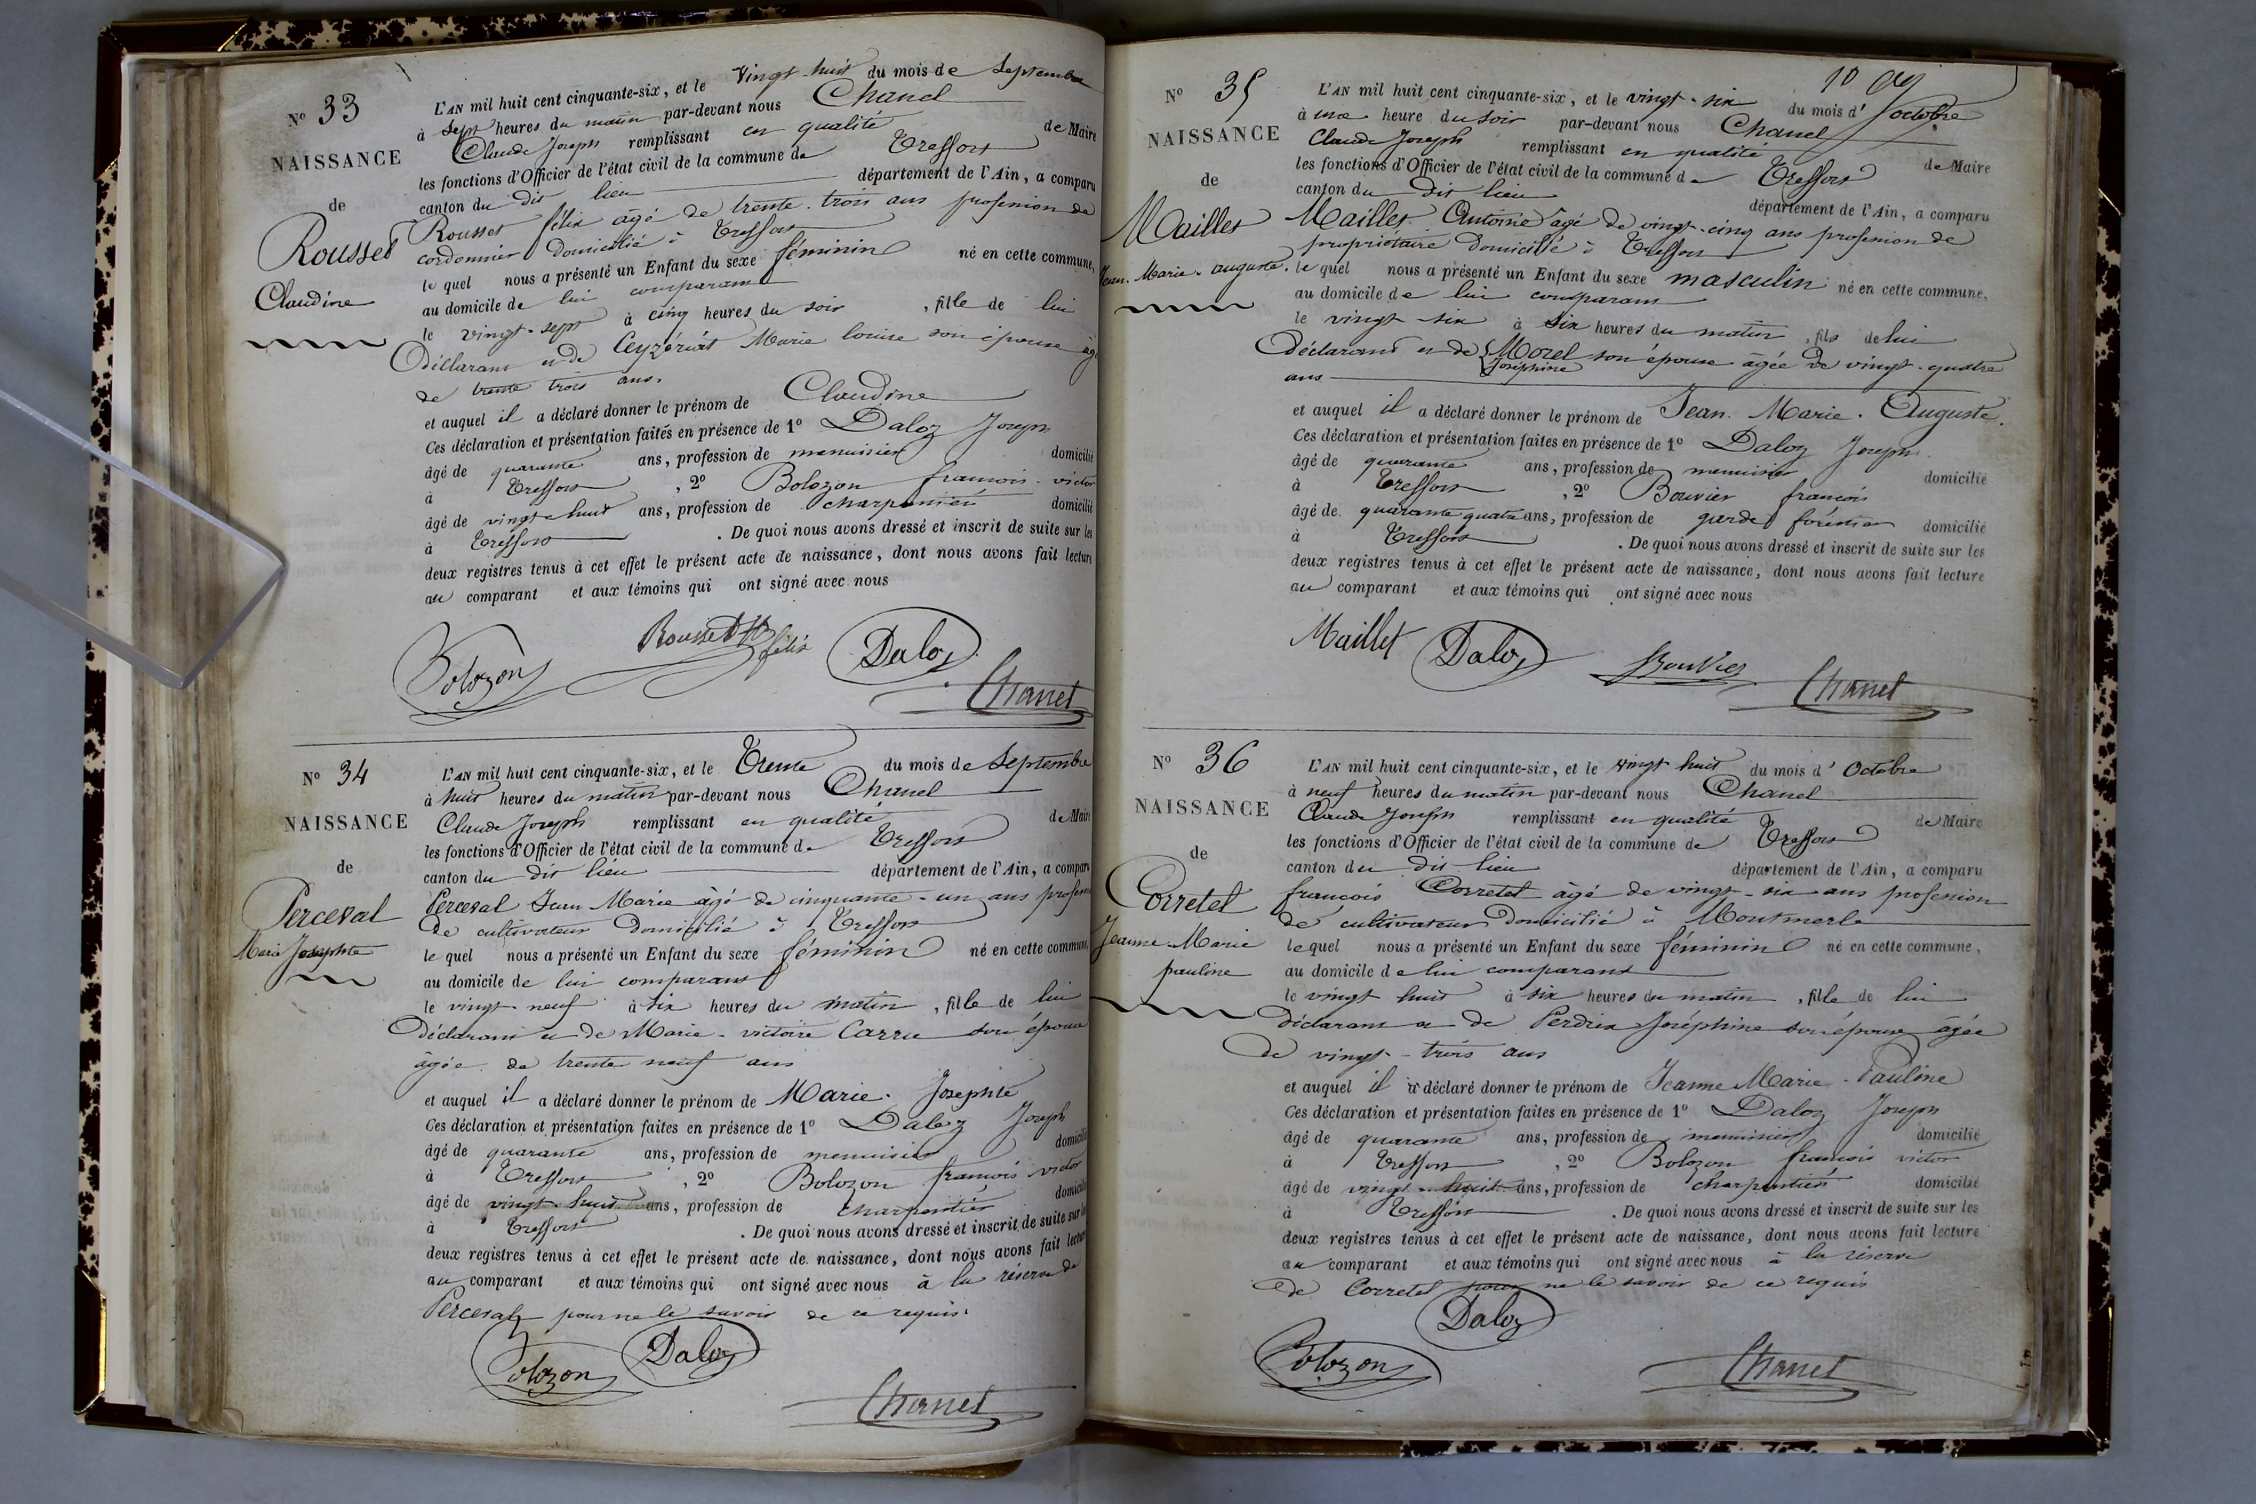 N° 33
NAISSANCE
de
Rousset
Claudine
L'AN mil huit cent cinquante-six, et le vingt-huit du mois de Septembre
à sept heures du matin par-devant nous Chanel
Claude Joseph remplissant en qualité de Maire
les fonctions d'Officier de l'état civil de la commune de Treffort
canton du dit lieu département de l'Ain, a comparu
Rousset félix âgé de trente-trois ans profession de
cordonnier domicilié à Treffort
lequel nous a présenté un Enfant du sexe féminin né en cette commune,
au domicile de lui comparant
le vingt-sept à cinq heures du soir, fille de lui
Déclarant et de Ceyzériat Marie louise son épouse âgé
de trente trois ans.
et auquel il a déclaré donner le prénom de Claudine
Ces déclaration et présentation faites en présence de 1° Daloz Joseph
âgé de quarante ans, profession de menuisier domicilié
à Treffort, 2° Bolozon francois-victor
âgé de vingt-huit ans, profession de charpentier domicilié
à Treffort. De quoi nous avons dressé et inscrit de suite sur les
deux registres tenus à cet effet le présent acte de naissance, dont nous avons fait lecture
au comparant et aux témoins qui ont signé avec nous
Rousset félix
Bolozon Daloz
Chanel
N° 34
NAISSANCE
de
Perceval
Marie Josephte
L'AN mil huit cent cinquante-six, et le Trente du mois de Septembre
à huit heures du matin par-devant nous Chanel
Claude Joseph remplissant en qualité de Maire
les fonctions d'Officier de l'état civil de la commune de Treffort
canton du dit lieu département de l'Ain, a comparu
Perceval Jean Marie âgé de cinquante-un ans profession
de cultivateur domicilié à Treffort
lequel nous a présenté un Enfant du sexe féminin né en cette commune,
au domicile de lui comparant
le vingt-neuf à six heures du matin, fille de lui
Déclarant et de Marie-victoire Carru son épouse
âgée de trente neuf ans
et auquel il a déclaré donner le prénom de Marie-Josephte
Ces déclaration et présentation faites en présence de 1° Daloz Joseph
âgé de quarante ans, profession de menuisier domicilié
à Treffort, 2° Bolozon francois victor
âgé de vingt-huit ans, profession de charpentier domicilié
à Treffort. De quoi nous avons dressé et inscrit de suite sur les
deux registres tenus à cet effet le présent acte de naissance, dont nous avons fait lecture
au comparant et aux témoins qui ont signé avec nous à la réserve de
Perceval pour ne le savoir de ce requis.
Bolozon Daloz
Chanel
10
N° 35
NAISSANCE
de
Maillet
Jean-Marie-auguste.
L'AN mil huit cent cinquante-six, et le vingt-six du mois d'octobre
à une heure du soir par-devant nous Chanel
Claude Joseph remplissant en qualité de Maire
les fonctions d'Officier de l'état civil de la commune de Treffort
canton du dit lieu département de l'Ain, a comparu
Maillet Antoine âgé de vingt-cinq ans profession de
propriétaire domicilié à Treffort
lequel nous a présenté un Enfant du sexe masculin né en cette commune,
au domicile de lui comparant
le vingt-six à six heures du matin, fils de lui
Déclarant et de Morel Joséphine son épouse âgée de vingt-quatre
ans
et auquel il a déclaré donner le prénom de Jean-Marie-Auguste.
Ces déclaration et présentation faites en présence de 1° Daloz Joseph
âgé de quarante ans, profession de menuisier domicilié
à Treffort, 2° Bouvier francois
âgé de quarante quatre ans, profession de garde forestier domicilié
à Treffort. De quoi nous avons dressé et inscrit de suite sur les
deux registres tenus à cet effet le présent acte de naissance, dont nous avons fait lecture
au comparant et aux témoins qui ont signé avec nous
Maillet Daloz Bouvier Chanel
N° 36
NAISSANCE
de
Corretel
Jeanne Marie
pauline
L'AN mil huit cent cinquante-six, et le vingt huit du mois d'Octobre
à neuf heures du matin par-devant nous Chanel
Claude Joseph remplissant en qualité de Maire
les fonctions d'Officier de l'état civil de la commune de Treffort
canton du dit lieu département de l'Ain, a comparu
françois Corretel âgé de vingt-six ans profession
de cultivateur domicilié à Montmerle
lequel nous a présenté un Enfant du sexe féminin né en cette commune,
au domicile de lui comparant
le vingt huit à six heures du matin, fille de lui
déclarant et de Perdrix Joséphine son épouse âgée
de vingt-trois ans
et auquel il a déclaré donner le prénom de Jeanne Marie-Pauline
Ces déclaration et présentation faites en présence de 1° Daloz Joseph
âgé de quarante ans, profession de menuisier domicilié
à Treffort, 2° Bolozon francois victor
âgé de vingt-huit ans, profession de charpentier domicilié
à Treffort. De quoi nous avons dressé et inscrit de suite sur les
deux registres tenus à cet effet le présent acte de naissance, dont nous avons fait lecture
au comparant et aux témoins qui ont signé avec nous à la réserve
de Corretel pour ne le savoir de ce requis
Daloz
Bolozon Chanel